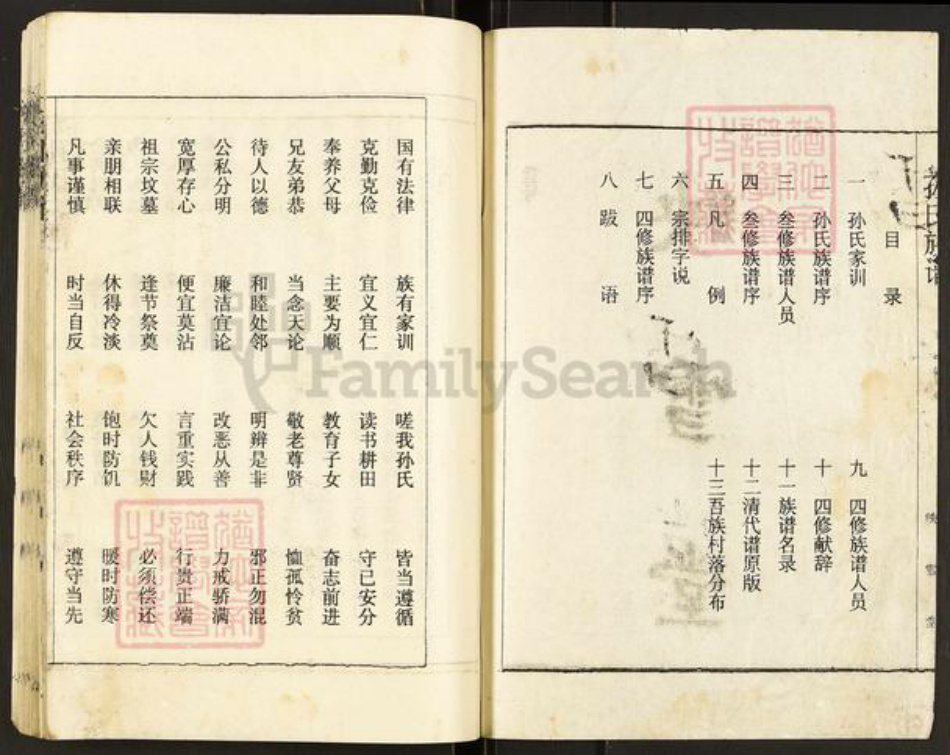 孙氏族谱
目录
一 孙氏家训
二 孙氏族谱序
三 叁修族谱人员
四 叁修族谱序
五 凡例
六 宗排字说
七 四修族谱序
八 跋语
九 四修族谱人员
十 四修献辞
十一族谱名录
十二清代谱原版
十三吾族村落分布
国有法律 族有家训 嗟我孙氏 皆当遵循
克勤克俭 宜义宜仁 读书耕田 守已安分
奉养父母 主要为顺 教育子女 奋志前进
兄友弟恭 当念天论 敬老尊贤 恤孤怜贫
待人以德 和睦处邻 明辨是非 邪正勿混
公私分明 廉洁宜论 改恶从善 力戒骄满
宽厚存心 便宜莫沾 言重实践 行贵正端
祖宗坟墓 逢节祭奠 欠人钱财 必须偿还
亲朋相联 休得冷淡 饱时防饥 暖时防寒
凡事谨慎 时当自反 社会秩序 遵守当先
FamilySearch